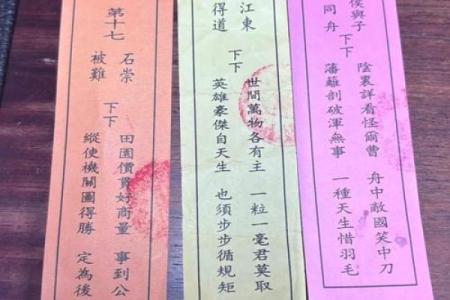 侯與子
同舟
下下
陰裏詳看怪爾曹 舟中敵國笑中刀
藩籬剖破渾無事 一種天生惜羽毛
江東
得道
下下
世間萬物各有主 一粒一毫君莫取
英雄豪傑自天生 也須步步循規矩
第十七
石崇
被難
下下
田園價貫好商量 事到公
縱使機關圖得勝 定為後